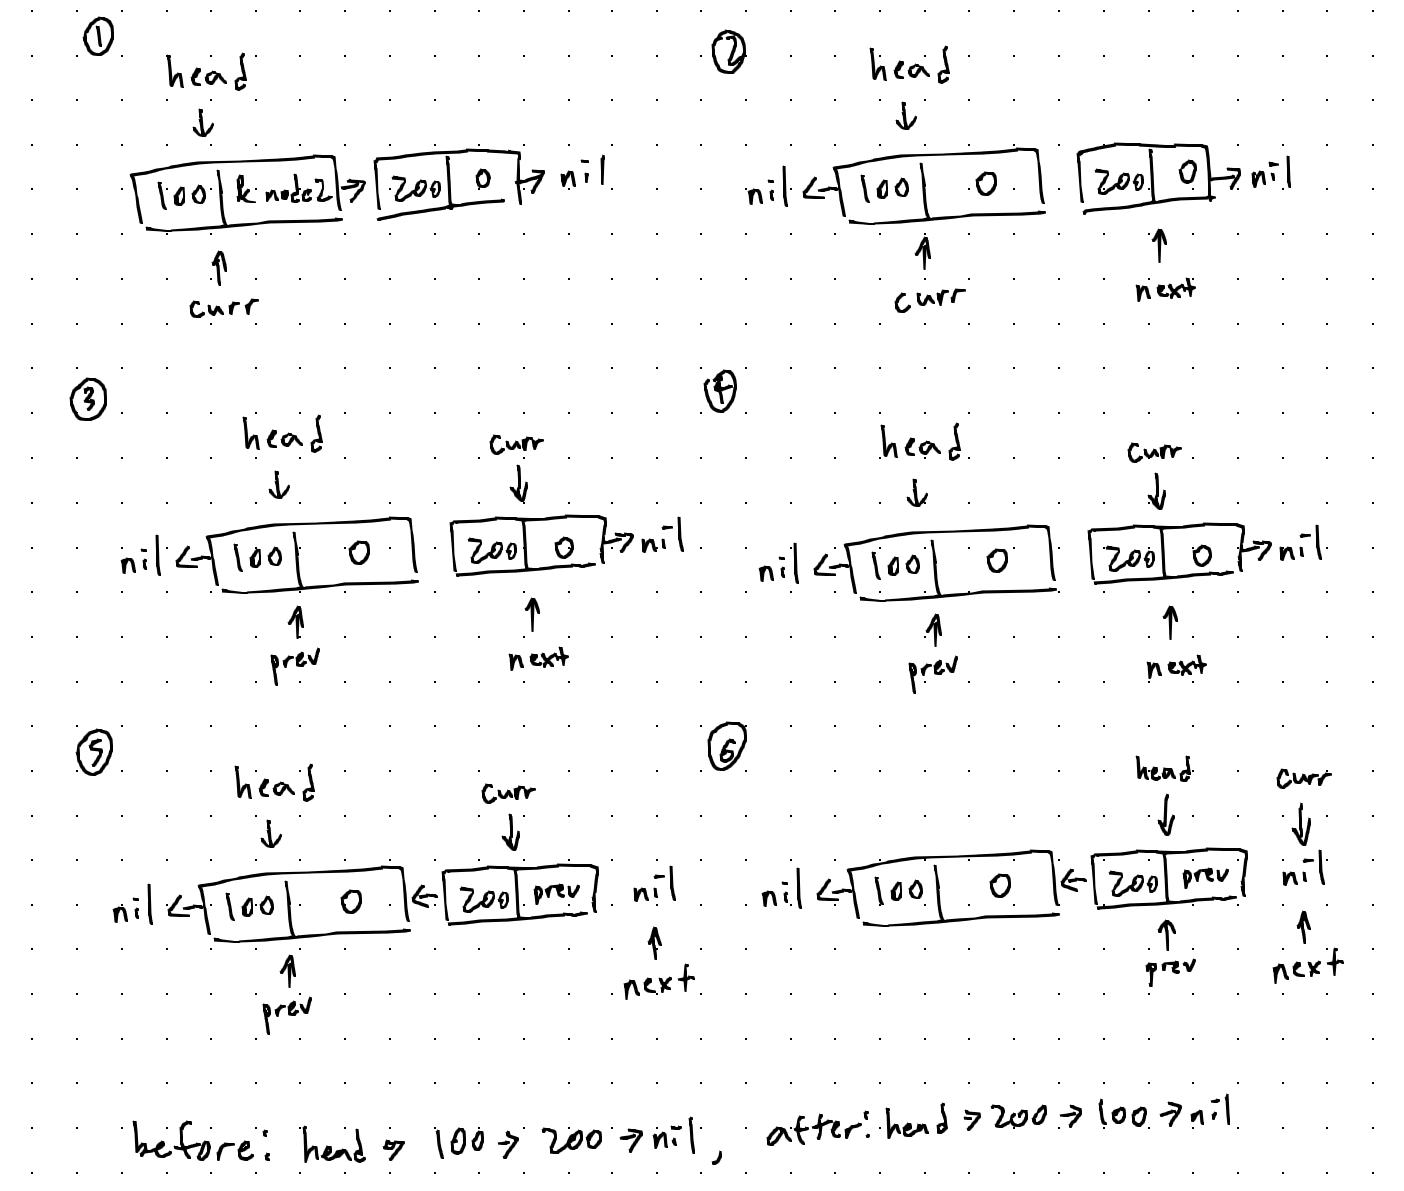 ①
head
↓
100 & node2 → 200 0 → nil
↑
curr
②
head
↓
nil ← 100 0 200 0 → nil
↑ ↑
curr next
③
head curr
↓ ↓
nil ← 100 0 200 0 → nil
↑ ↑
prev next
④
head curr
↓ ↓
nil ← 100 0 200 0 → nil
↑ ↑
prev next
⑤
head curr
↓ ↓
nil ← 100 0 ← 200 prev nil
↑ ↑
prev next
⑥
head curr
↓ ↓
nil ← 100 0 ← 200 prev nil
↑ ↑
prev next
before: head → 100 → 200 → nil, after: head → 200 → 100 → nil